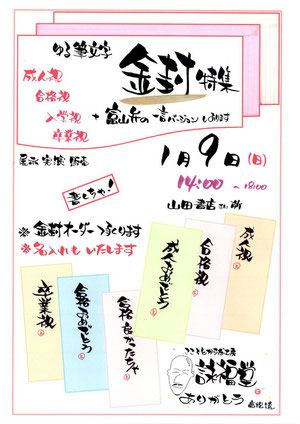 ゆる筆文字
金封特集
成人祝
合格祝
入学祝
卒業祝
+ 富山弁の一言バージョンもあります
展示 実演 販売
1月9日(日)
14:00 ~ 18:00
書しちゃ!
山田書店さん
※金封オーダーつくります
※名入れもいたします
卒業祝
合格おめでとう
合格良かったちゃ
成人おめでとう
合格祝
成人祝
詠福堂
ありがとう